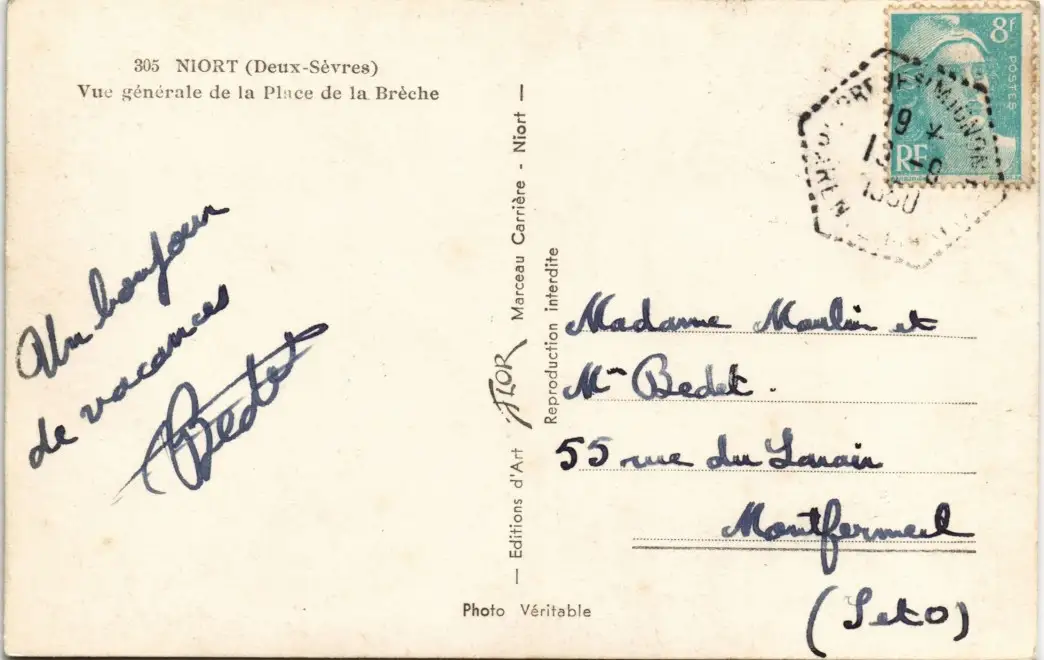 305 NIORT (Deux-Sèvres)
Vue générale de la Place de la Brèche
Un bonjour
de vacances
Bedet
— Editions d'Art FLOR Marceau Carrière - Niort —
Reproduction interdite
Photo Véritable
8f
POSTES
RF
MIGNON
19 *
13 - 9
Madame Moulin et
Mr Bedet.
55 rue du
Montfermeil
(S et O)